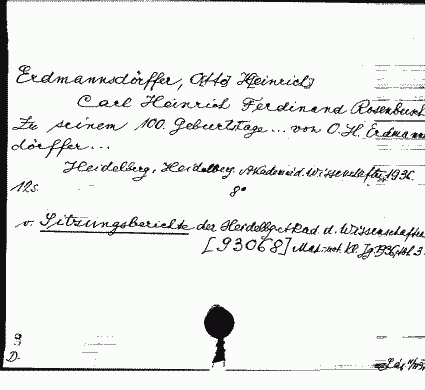 Erdmannsdörffer, Otto Heinrich
Carl Heinrich Ferdinand Rosenbusch
Zu seinem 100. Geburtstage... von O.H. Erdmanns
dörffer...
Heidelberg, Heidelberg. Akademie d. Wissenschaften, 1936.
12s. 8°
v. Sitzungsberichte der Heidelbg. Akad. d. Wissenschaften
[93068] Mat.-nat. Kl. Jg. 1936, 3
9
D.